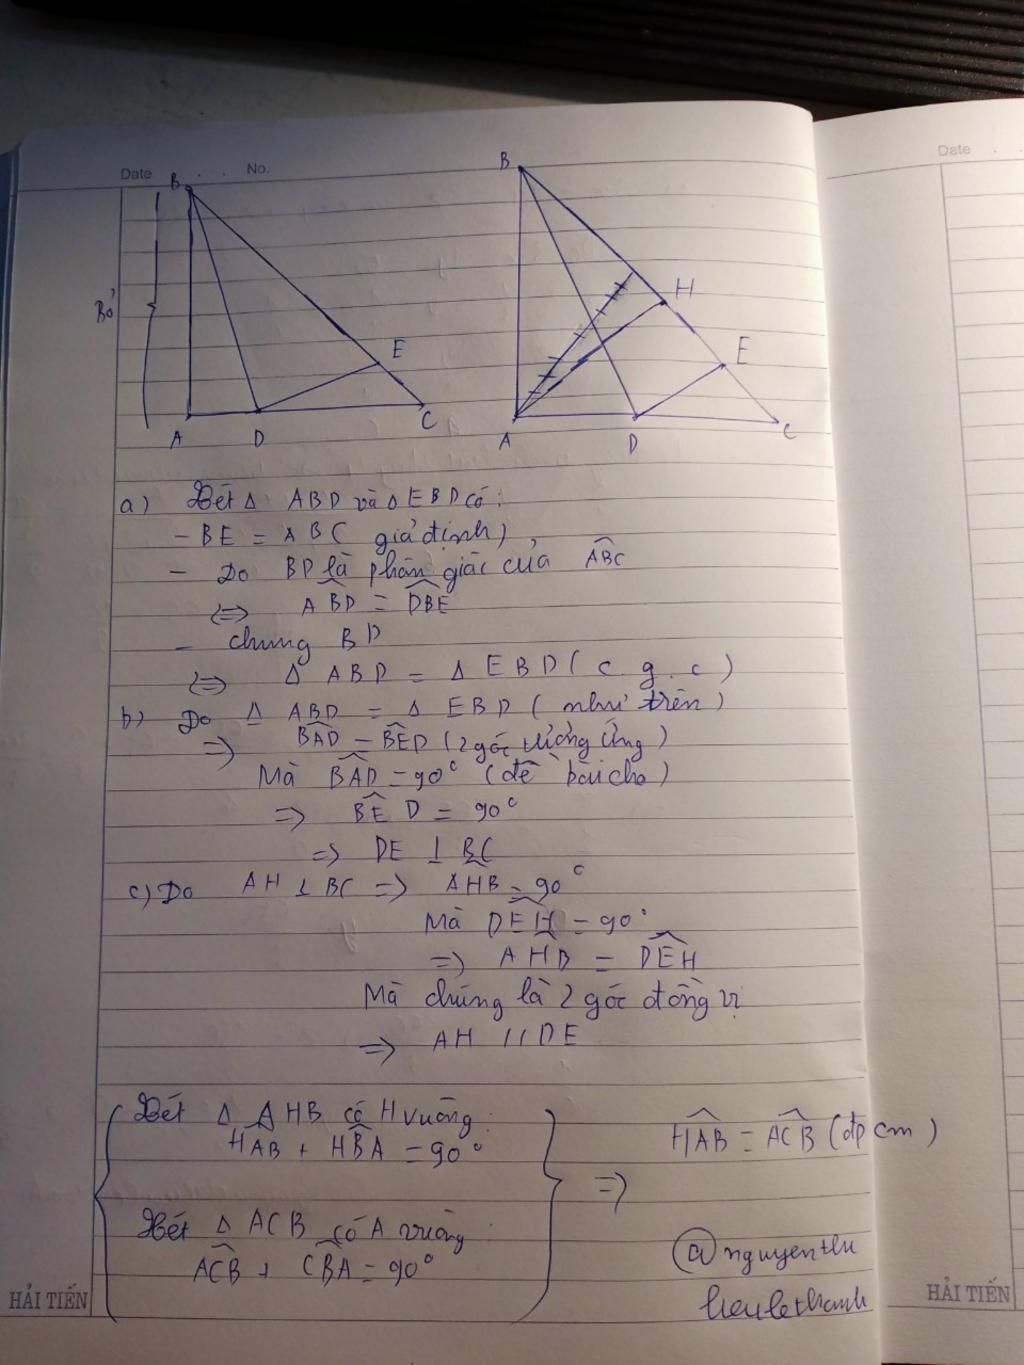 Date . . No.
Date . .
B
Bỏ
E
A D C
B
H
E
A D C
a) Xét Δ ABD và Δ EBD có:
- BE = ABC giả định)
- Do BD là phân giác của ABC
<=> ABD = DBE
- chung BD
<=> Δ ABD = Δ EBD ( c . g . c )
b) Do Δ ABD = Δ EBD ( như trên )
=> BAD = BED (2 góc tương ứng )
Mà BAD = 90° (đề bài cho)
=> BED = 90°
=> DE ⊥ BC
c) Do AH ⊥ BC => AHB = 90°
Mà DEH = 90°
=> AHB = DEH
Mà chúng là 2 góc đồng vị
=> AH // DE
Xét Δ AHB có H vuông:
HAB + HBA = 90°
Xét Δ ACB có A vuông:
ACB + CBA = 90°
=> HAB = ACB (đpcm )
@nguyenthu
HẢI TIẾN
HẢI TIẾN